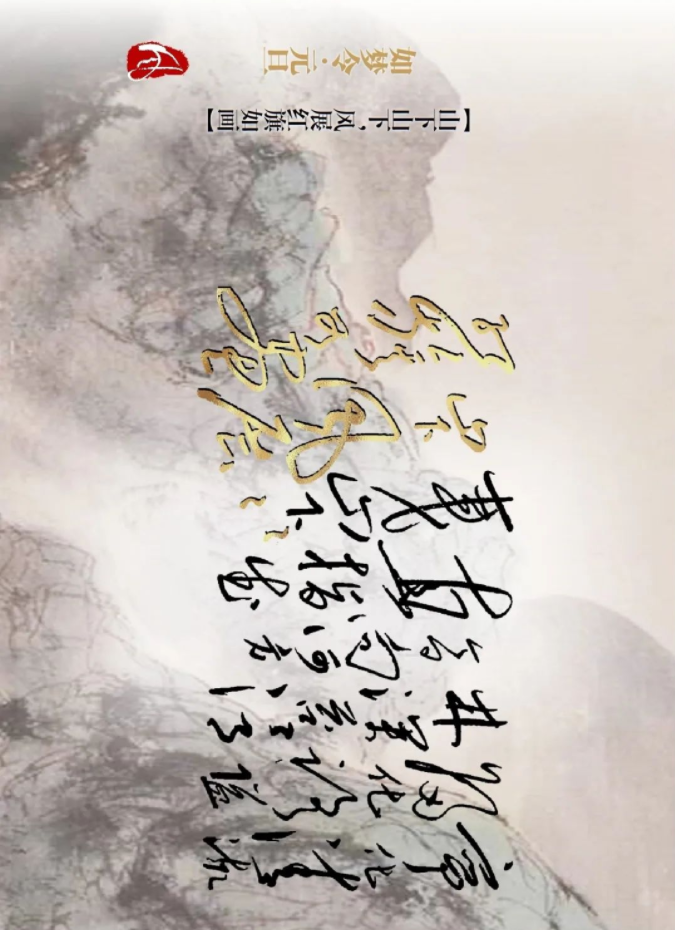 如梦令·元旦
【山下山下,风展红旗如画】
宁化清流
归化路隘
林深苔滑
今日向何方
直指武
夷山下
山下风展
红旗如画